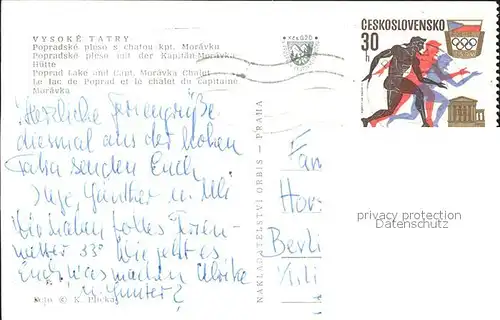 VYSOKÉ TATRY
Popradské pleso s chatou kpt. Morávku
Popradské pleso mit der Kapitän-Morávka-
Hütte
Poprad Lake and Capt. Morávka Chalet
Le lac de Poprad et le chalet du Capitaine
Morávka
ČESKOSLOVENSKO
30
h
Herzliche Feriengrüße
diesmal aus der hohen
Tatra senden Euch
Inge, Günther u. Uli
Wir haben tolles Ferien-
wetter 33° Wie geht es
Euch, was machen Ulrike
u. Gunter?
Foto © K. Plicka
NAKLADATELSTVÍ ORBIS - PRAHA
Fam
Hor
Berli
privacy protection
Datenschutz